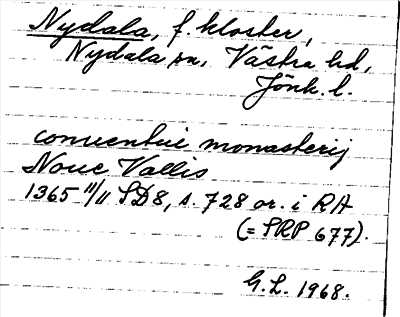 Nydala, f. kloster,
Nydala sn, Västra hd,
Jönk. l.
conuentui monasterij
Noue Vallis
1365 11/11 SD8, s. 728 or. i RA
(= SRP 677).
G.L. 1968.